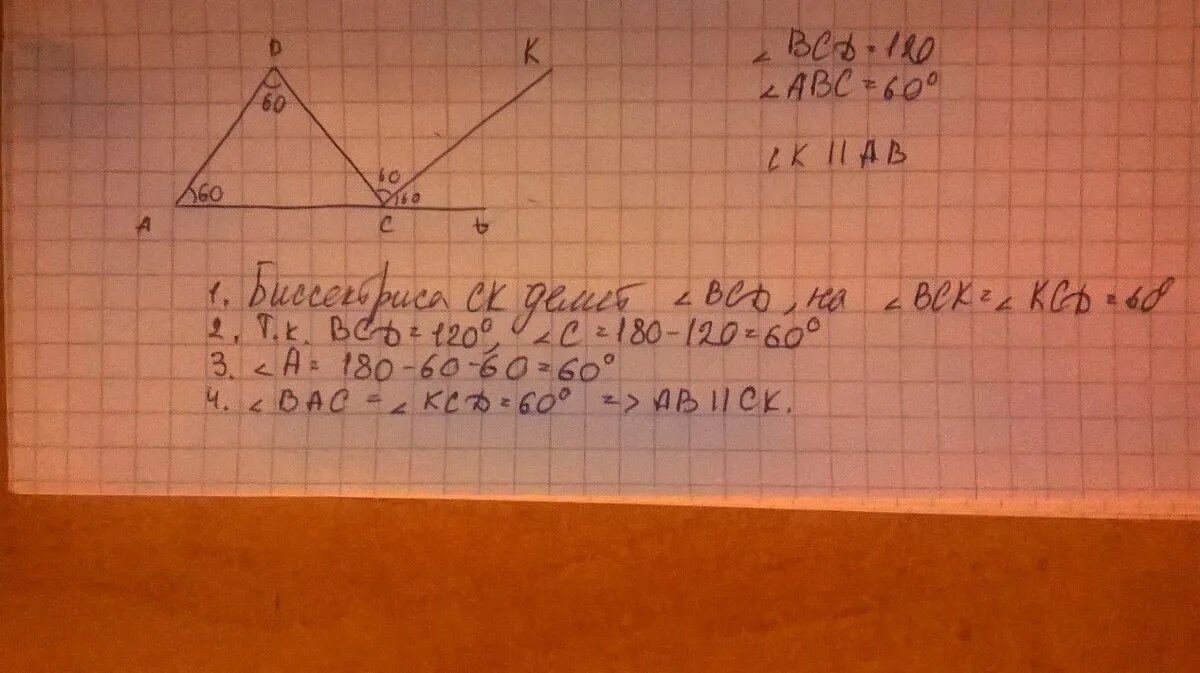 B
K
60
60
60
60
A
C
∠BCD = 120
∠ABC = 60°
CK || AB
1. Биссектриса CK делит ∠BCD, на ∠BCK = ∠KCD = 60
2. Т.к. BCD = 120°, ∠C = 180 - 120 = 60°
3. ∠A = 180 - 60 - 60 = 60°
4. ∠BAC = ∠KCD = 60° => AB || CK.